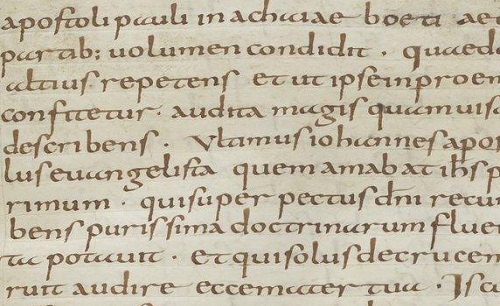 apostoli pauli in achaiae boeti ae
partib; uolumen condidit · quaed
altius repetens et ut ipse in proem
confitetur · audita magis quam uis
describens · Ultimus iohannes apos
lus euangelista quem amabat ihs p
rimum · qui super pectus dni recum
bens purissima doctrinarum fluen
ta potauit · et qui solus de crucem
ruit audire ecce mater tua · Is c